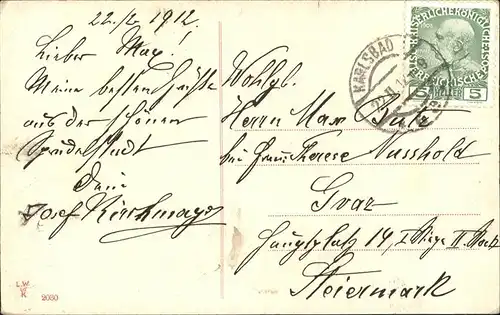 22./2. 1912.
Lieber Max!
Meine besten Grüße
aus der schönen
Sprudelstadt
Dein
Josef Kirchmayr
L.W.
K
2030
Wohlgb.
Herrn Max
bei Frau Therese Nusshold
Graz
Hauptplatz 14, I. Stiege II. Stock
Steiermark
KARLSBAD
5 HELLER 5